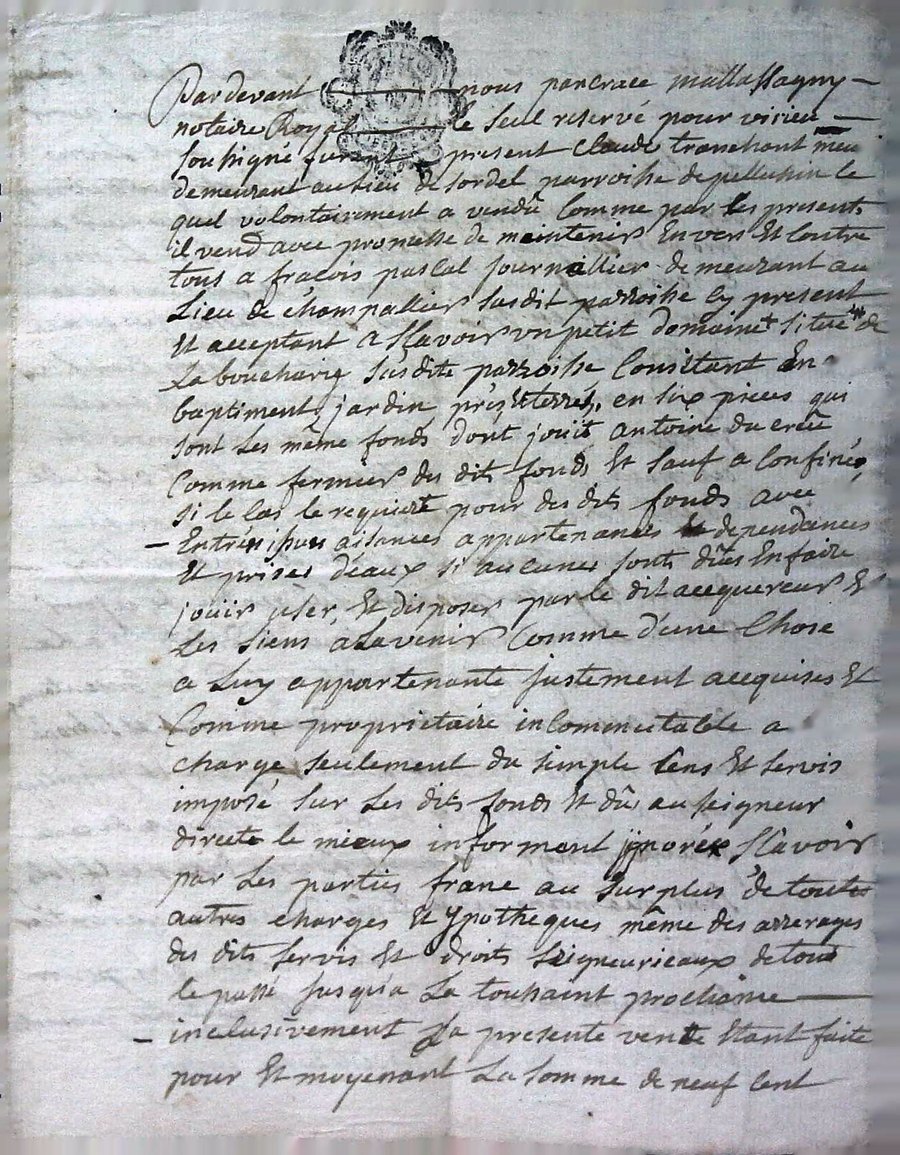 Pardevant nous pancrace mallassagny
notaire Royal le seul reservé pour virieu
soussigné furent present Claude tranchant meu
demeurant au lieu de sordel parroisse de pellussin le
quel volontairement a vendû Comme par les presents
il vend avec promesse de maintenir Envers Et Contre
tous a fraçois pascal journallier demeurant au
Lieu de champallier susdit parroisse Cy present
Et acceptant a Scavoir un petit domaine situé de
La boucharie susdite parroisse Consitant En
baptiment, jardin prés, Et terres, en six pieces qui
sont Les même fonds dont jouit antoine du creû
Comme fermier des dits fonds Et sauf a Confiner
si le Cas le requiert pour des dits fonds avec
Entrés, aisances appartenances dependances
Et prises d'eaux si aucunes sonts dûes En faire
jouir user, Et disposer par le dit acquereur Et
Les Siens a Lavenir Comme d'une Chose
a Luy appartenante justement acquises Et
Comme proprietaire incommutable a
charge seulement du simple Cens Et servis
imposé sur Les dits fonds Et dû au seigneur
directe le mieux informent Scavoir
par Les parties franc au surplus de toutes
autres charges Et Ypotheques même des arrerages
des dits servis Et droits Seigneuricaux de tout
le passé jusqu'a La toussaint prochaine
inclusivement La presente vente Etant faite
pour Et moyenant La somme de neuf Cent